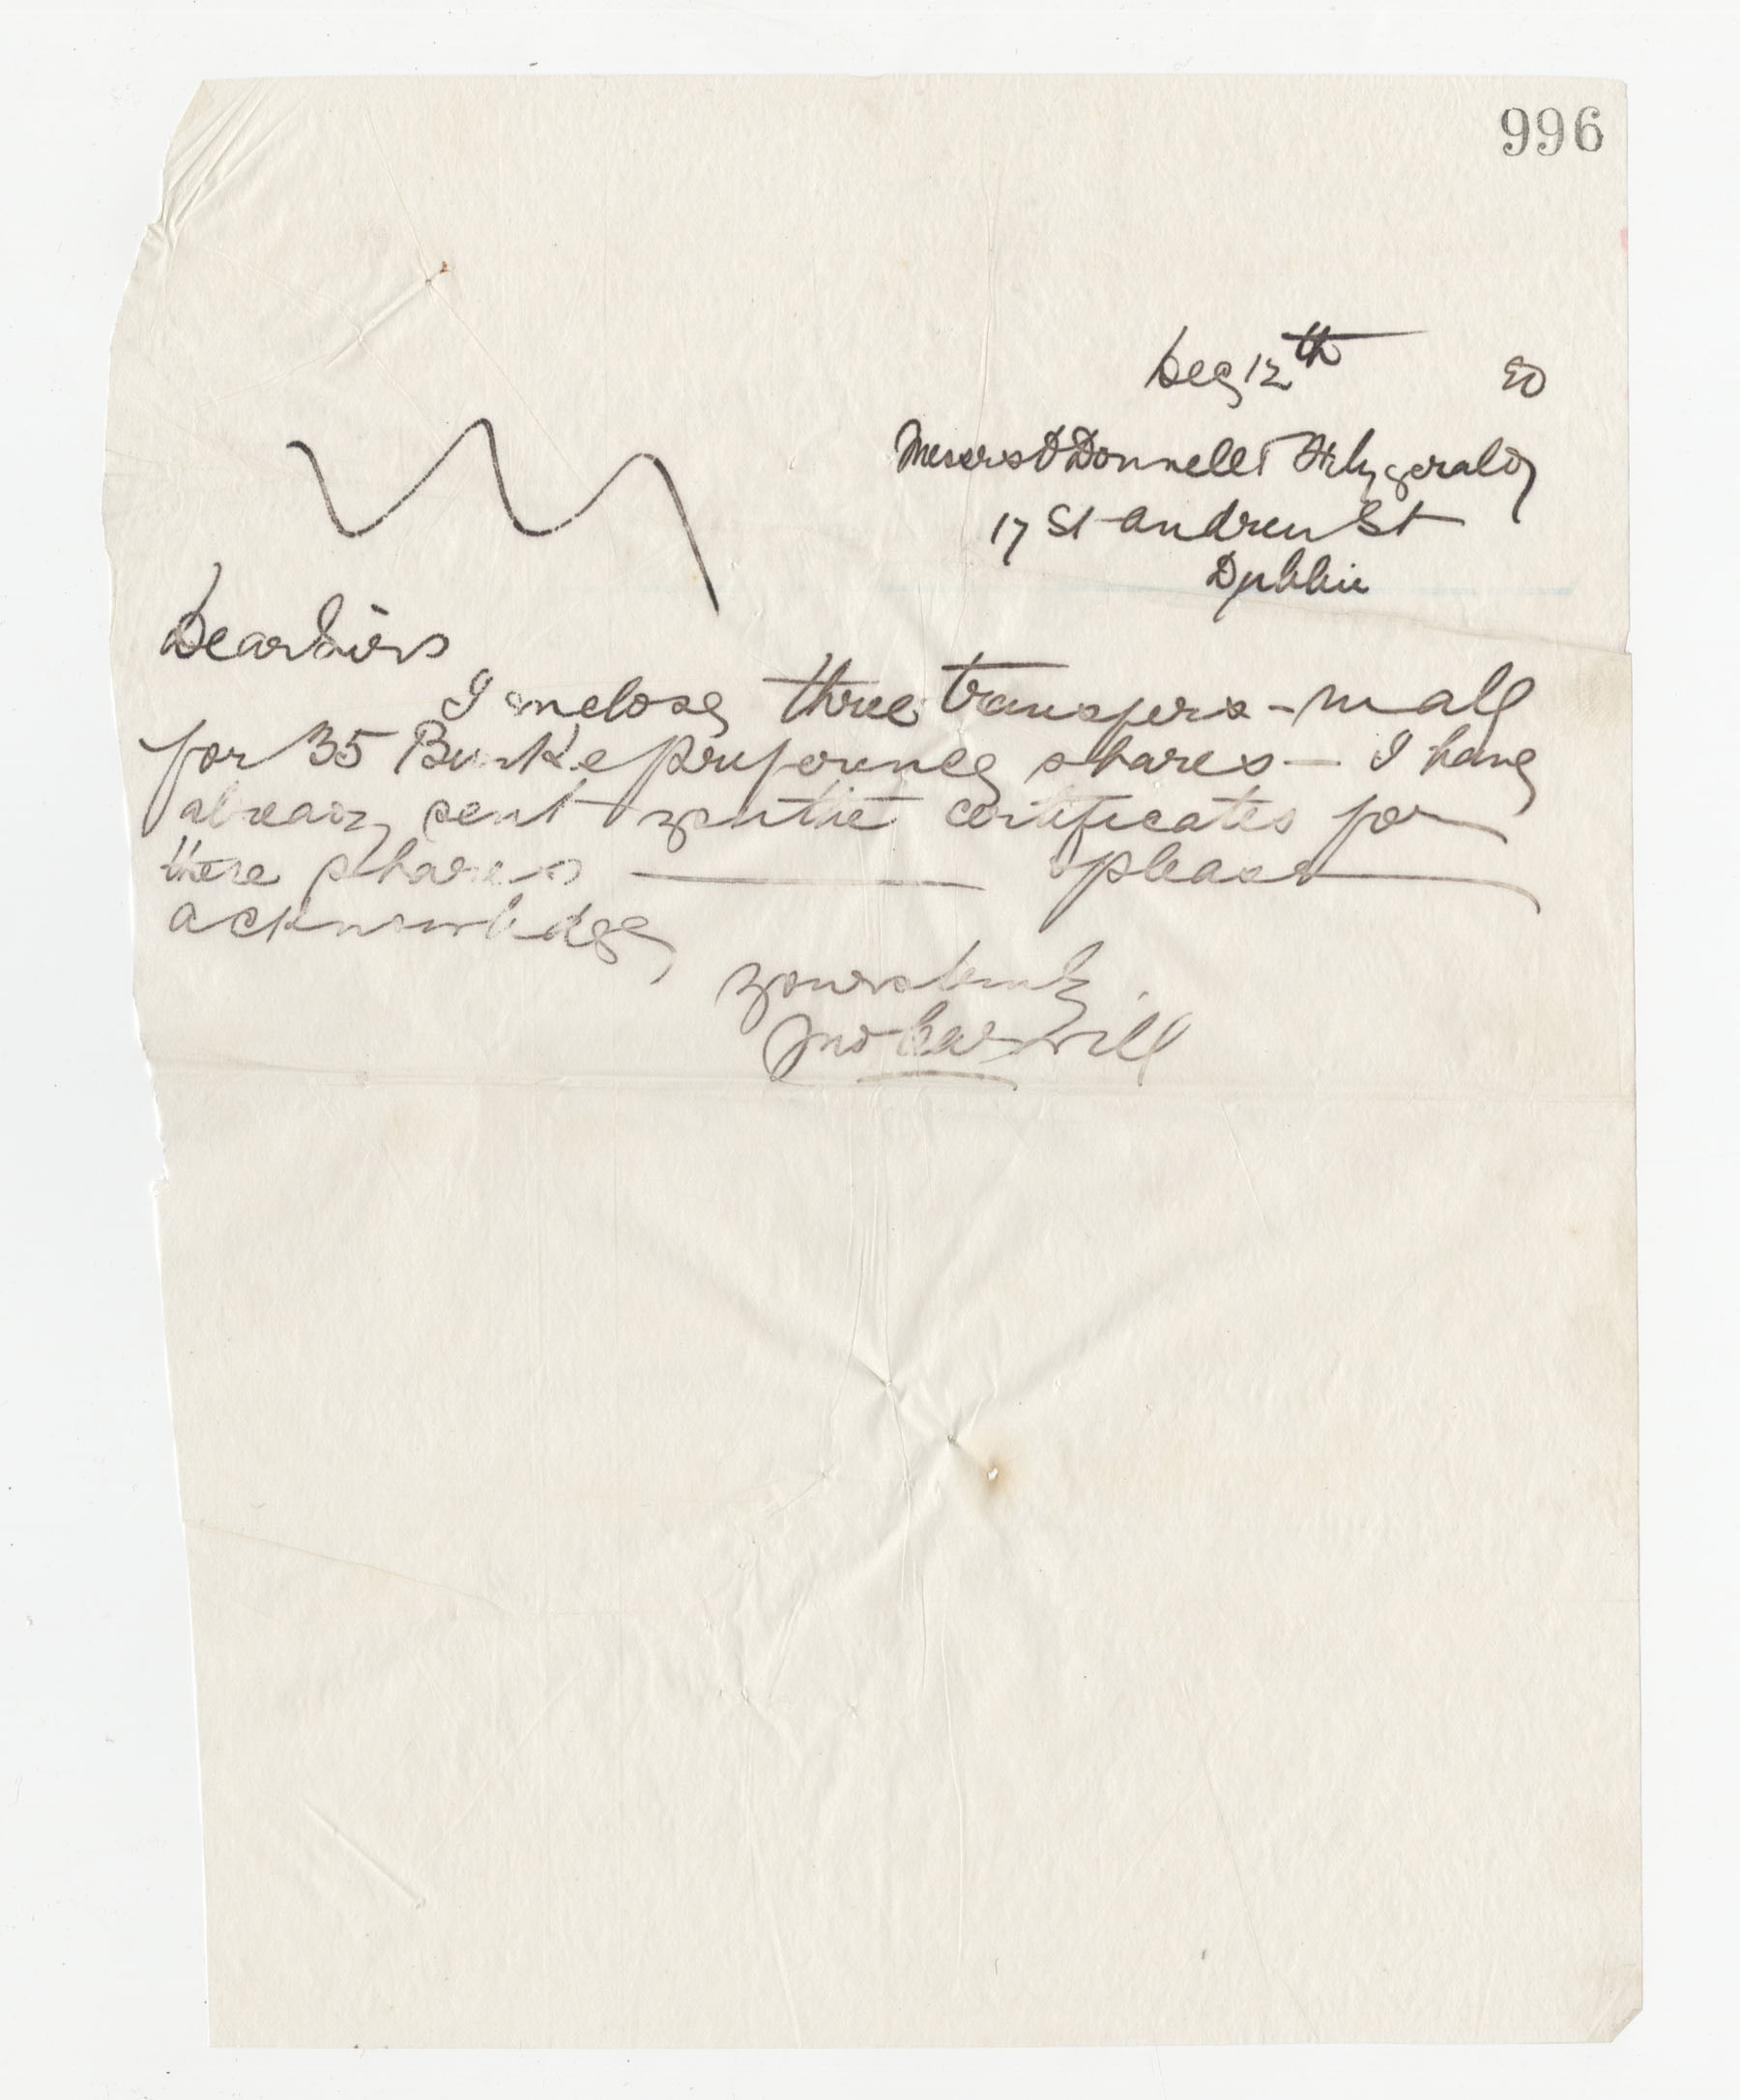 996
Dec 12th 20
Messrs O'Donnell & Fitzgerald
17 St Andrew St
Dublin
Dear Sirs
I enclose three transfers - in all
for 35 Burke preference shares - I have
already sent you the certificates for
these shares please
acknowledge
Yours truly
Jno